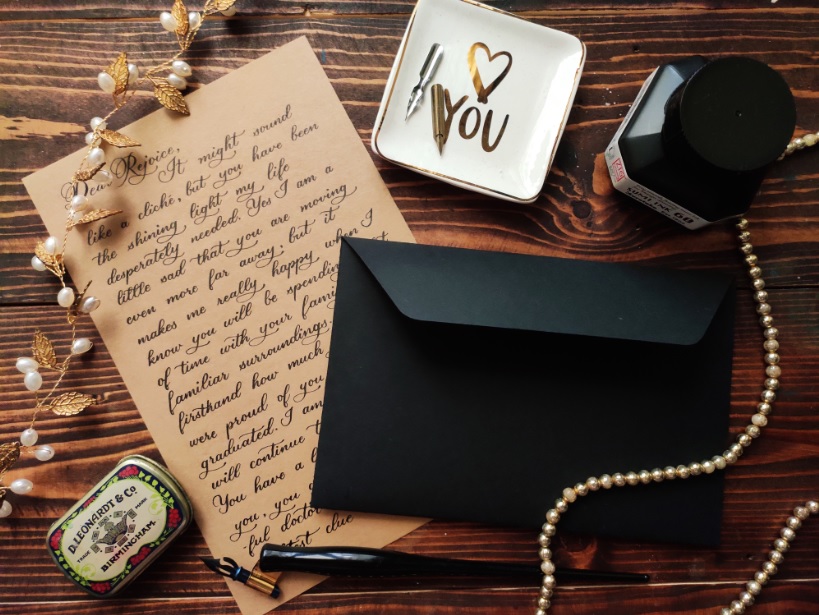 Dear Rejoice,
It might sound
like a cliché, but you have been
the shining light my life
desperately needed. Yes I am a
little sad that you are moving
even more far away, but it
makes me really happy when I
know you will be spending
of time with your
familiar surroundings.
firsthand how much
were proud of you
graduated. I am
will continue
You have a
you, you
-ful doctor
clue
YOU
SUMI INK 60
D. LEONARDT & Co.
TRADE MARK
BIRMINGHAM.